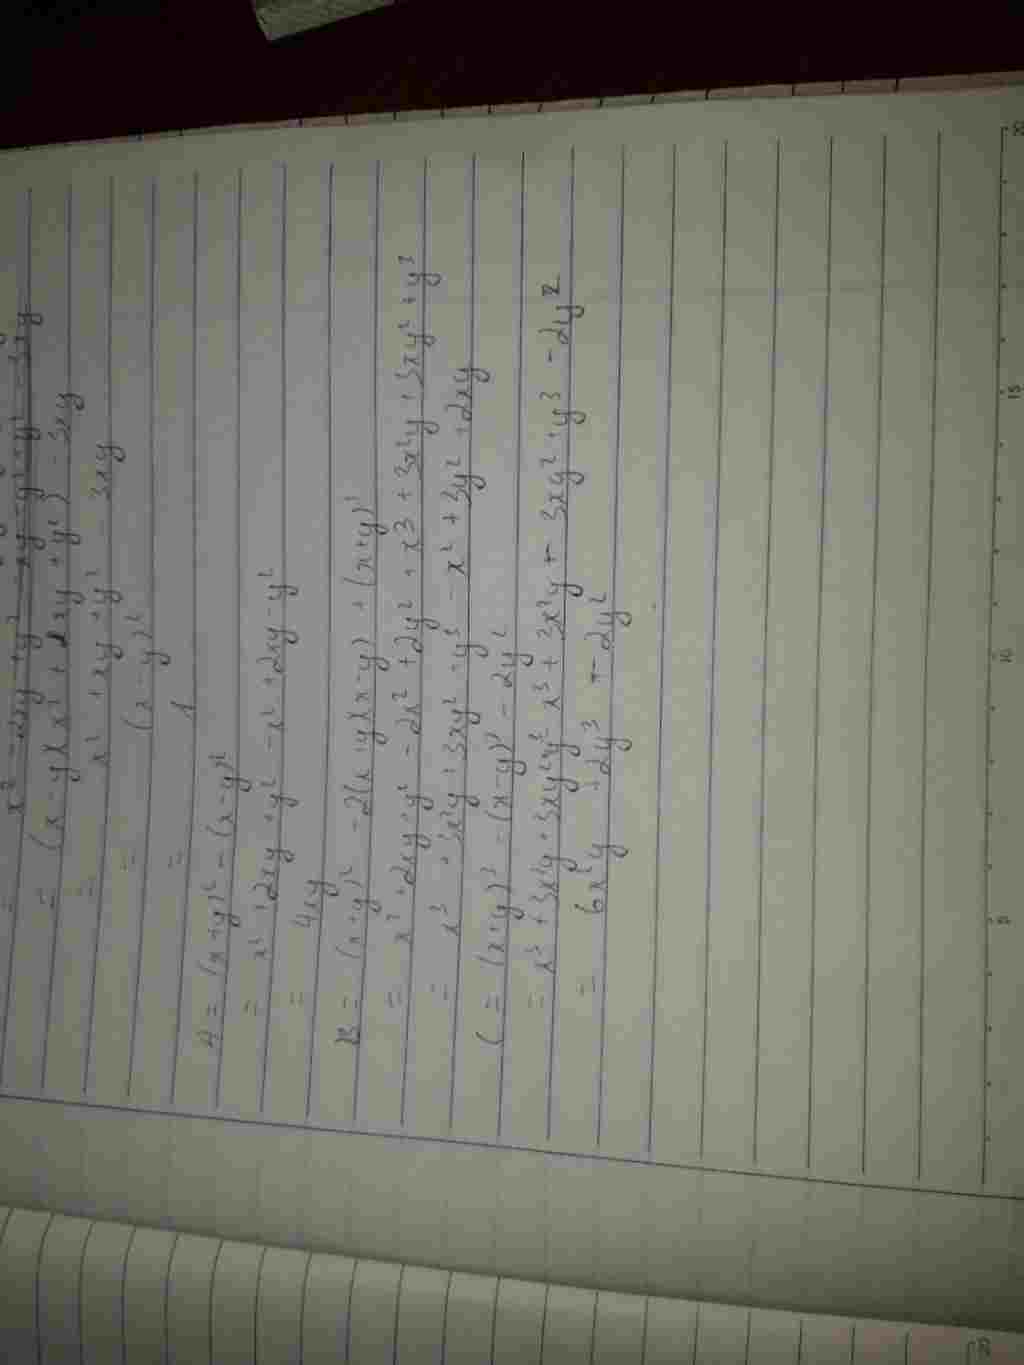 x² - 2xy + y² - xy - y² + y² - 3xy
= (x - y)(x² + xy + y²) - 3xy
= x² + xy + y² - 3xy
= (x - y)²
= 1
A = (x+y)² - (x-y)²
= x² + 2xy + y² - x² + 2xy - y²
= 4xy
B = (x+y)² - 2(x+y)(x-y) + (x+y)³
= x² + 2xy + y² - 2x² + 2y² + x³ + 3x²y + 3xy² + y³
= x³ + 3x²y + 3xy² + y³ - x² + 3y² + 2xy
C = (x+y)³ - (x-y)³ - 2y²
= x³ + 3x²y + 3xy² + y³ - x³ + 3x²y - 3xy² + y³ - 2y²
= 6x²y + 2y³ - 2y²
5
10
15
20